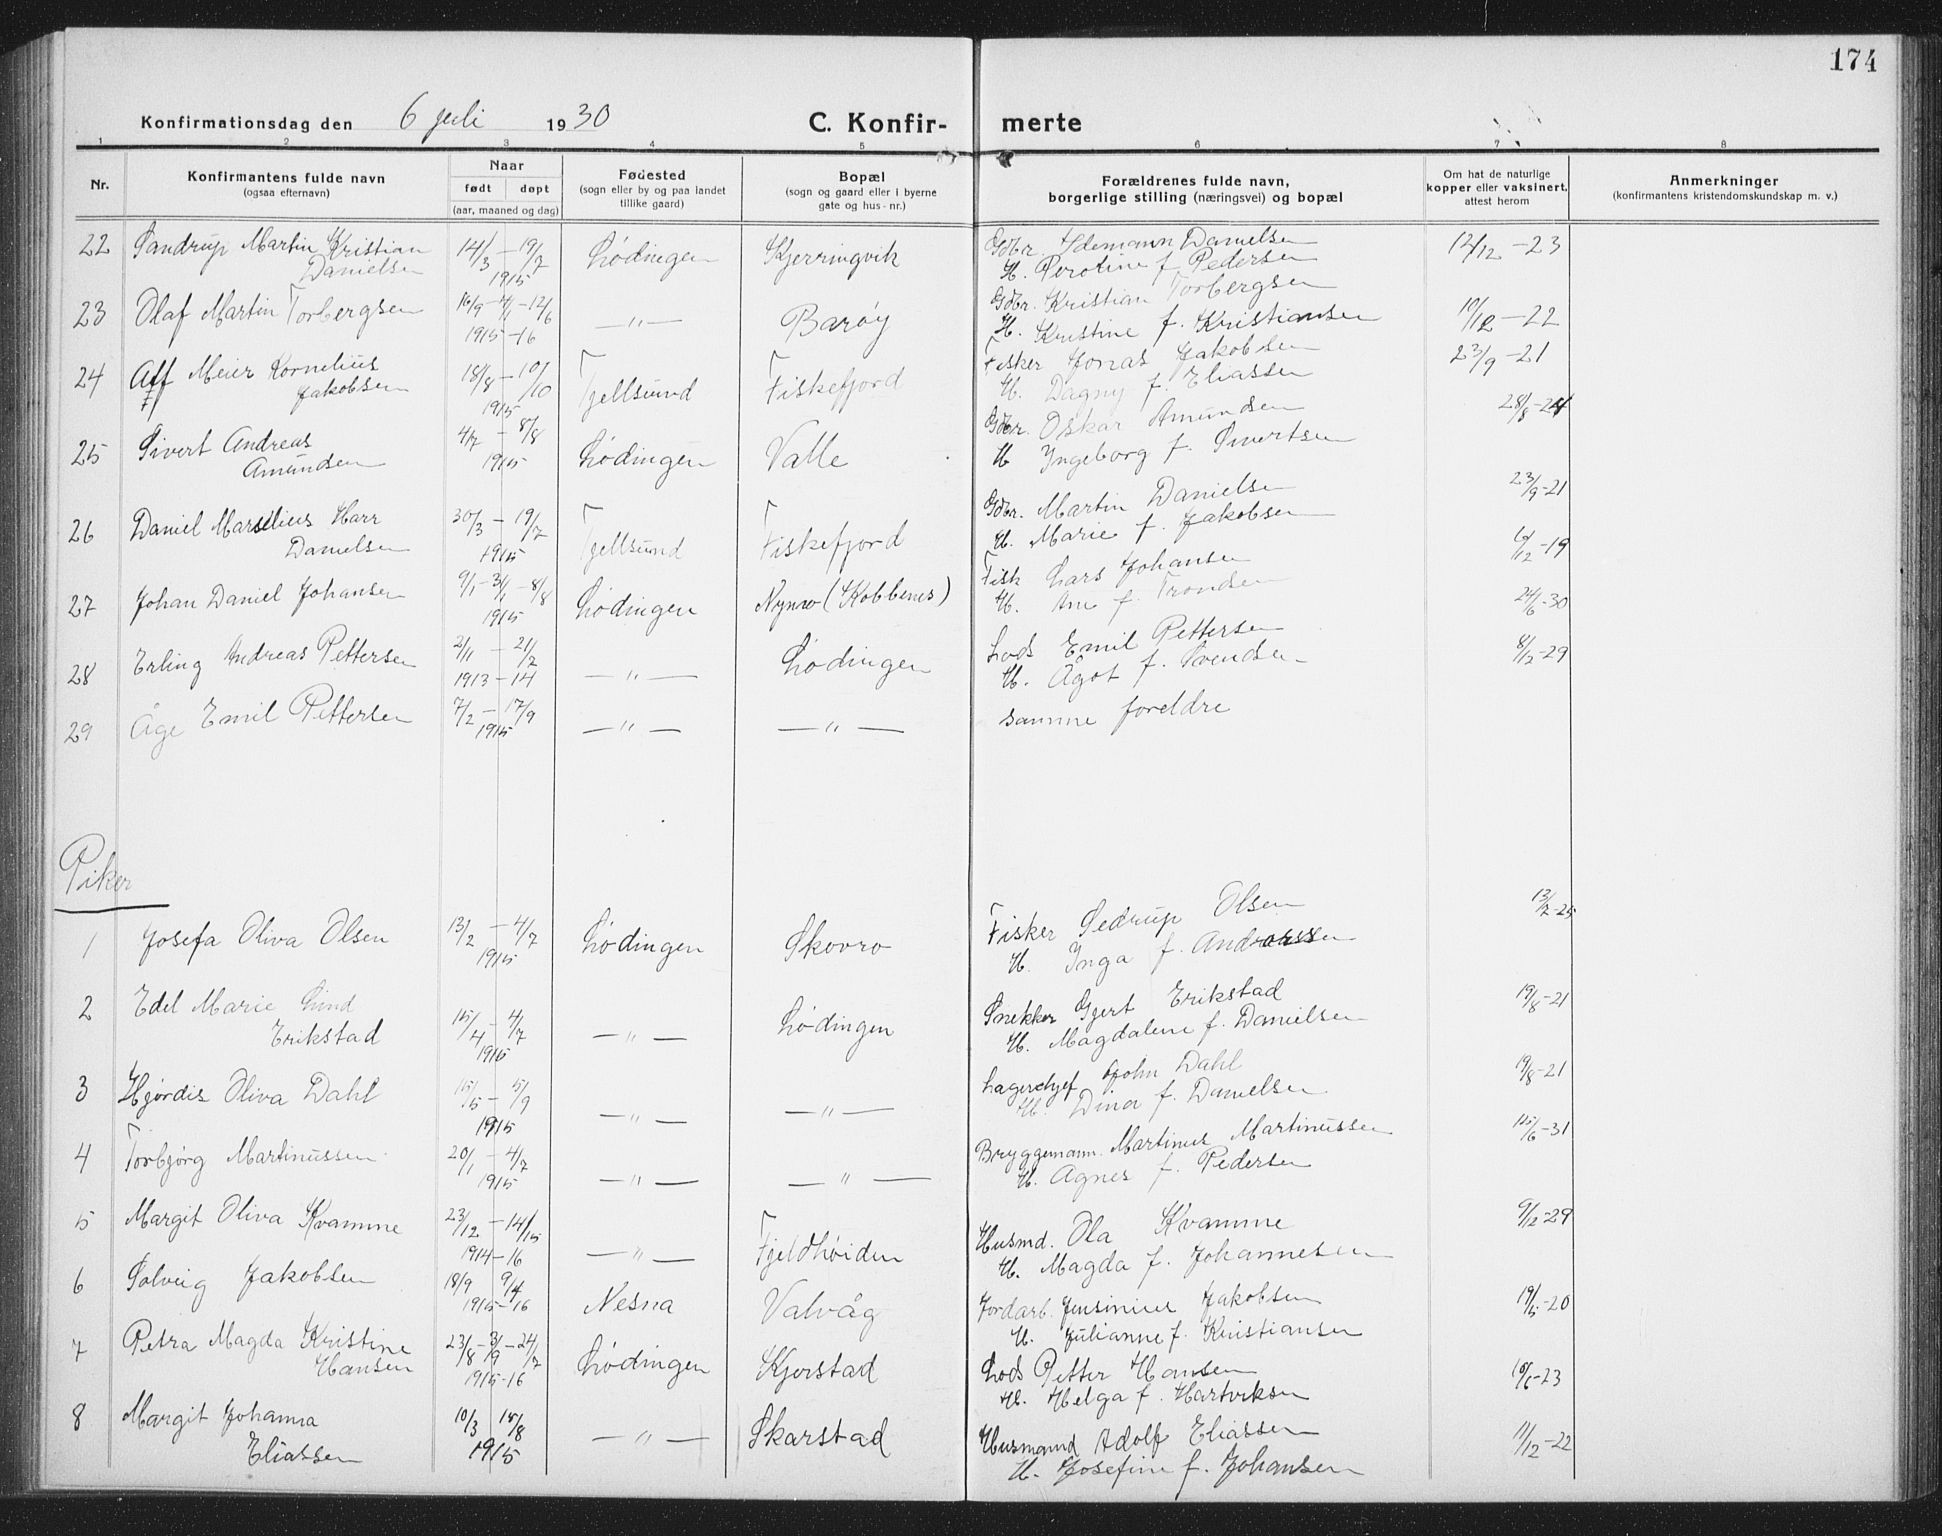 174
Konfirmationsdag den 6 juli 1930 C. Konfir- merte
1 2 3 4 5 6 7 8
Nr. Konfirmantens fulde navn (ogsaa efternavn) Naar født døpt (aar, maaned og dag) Fødested (sogn eller by og paa landet tillike gaard) Bopæl (sogn og gaard eller i byerne gate og hus-nr.) Forældrenes fulde navn, borgerlige stilling (næringsvei) og bopæl Om hat de naturlige kopper eller vaksinert, attest herom Anmerkninger (konfirmantens kristendomskundskap m. v.)
22 Sandrup Martin Kristian 14/3 – 19/7 Lødingen Kjerringvik Gdbr. Danielsen 12/12 – 23
Danielsen 1915 H. Perotine f. Pedersen
23 Olaf Martin Torbergsen 16/9 – 4/1 – 12/6 — " — Barøy Gdbr. Kristian Torbergsen
1915 – 16 H. Kristine f. Kristiansen 10/12 – 22
24 Alf Meier Kornelius 18/8 – 10/10 Tjellsund Fiskefjord Fisker Jonas Jakobsen 23/9 – 21
Jakobsen 1915 H. Dagny f. Eliassen
25 Sivert Andreas 4/7 – 8/8 Lødingen Valle Gdbr. Oskar Amundsen 28/8 – 24
Amundsen 1915 H Ingeborg f. Sivertsen
26 Daniel Marselius Harr 30/3 – 19/7 Tjellsund Fiskefjord Gdbr. Martin Danielsen 23/9 – 21
Danielsen 1915 H. Marie f. Jakobsen
27 Johan Daniel Johansen 9/1 – 31/1 – 8/8 Lødingen (Kobbenes) Fisk Lars Johansen /12 – 19
1915 H. f. Trondsen
28 Erling Andreas Pettersen 2/11 – 21/2 — " — Lødingen Lods Emil Pettersen 24/6 – 30
1913 – 14 H. Ågot f. Svendsen
29 Åge Emil Pettersen 7/2 – 17/9 — " — — " — samme foreldre 8/12 – 29
1915
Piker
1 Josefa Oliva Olsen 13/2 – 4/7 Lødingen Skovro Fisker Sedrup Olsen 13/2 – 25
1915 H. Inga f. Andreassen
2 Edel Marie Lind 15/4 – 4/7 — " — Lødingen Snekker Gjert Erikstad 19/8 – 21
Erikstad 1915 H. Magdalene f. Danielsen
3 Hjørdis Oliva Dahl 15/5 – 5/9 — " — — " — Lagerchef John Dahl 19/8 – 21
1915 H. Dina f. Danielsen
4 Torbjørg Martinussen 20/1 – 4/7 — " — — " — Bryggemann Martinus Martinussen 15/6 – 31
1915 H. Agnes f. Pedersen
5 Margit Oliva Kvamme 23/12 – 14/15 — " — Fjeldhøiden Husmd. Ola Kvamme 9/12 – 29
1914 – 16 H. Magda f. Johannesen
6 Solveig Jakobsen 18/9 9/4 Nesna Valvåg Jordarb. Jensinius Jakobsen 19/5 – 20
1915 – 16 H. Julianne f. Kristiansen
7 Petra Magda Kristine 23/8 – 3/9 – 24/7 Lødingen Kjerstad Lods Petter Hansen 10/6 – 23
Hansen 1915 – 16 H. Helga f. Hartviksen
8 Margit Johanna 10/3 15/8 — " — Skarstad Husmand Adolf Eliassen 11/12 – 22
Eliassen 1915 H. Josefine f. Johansen